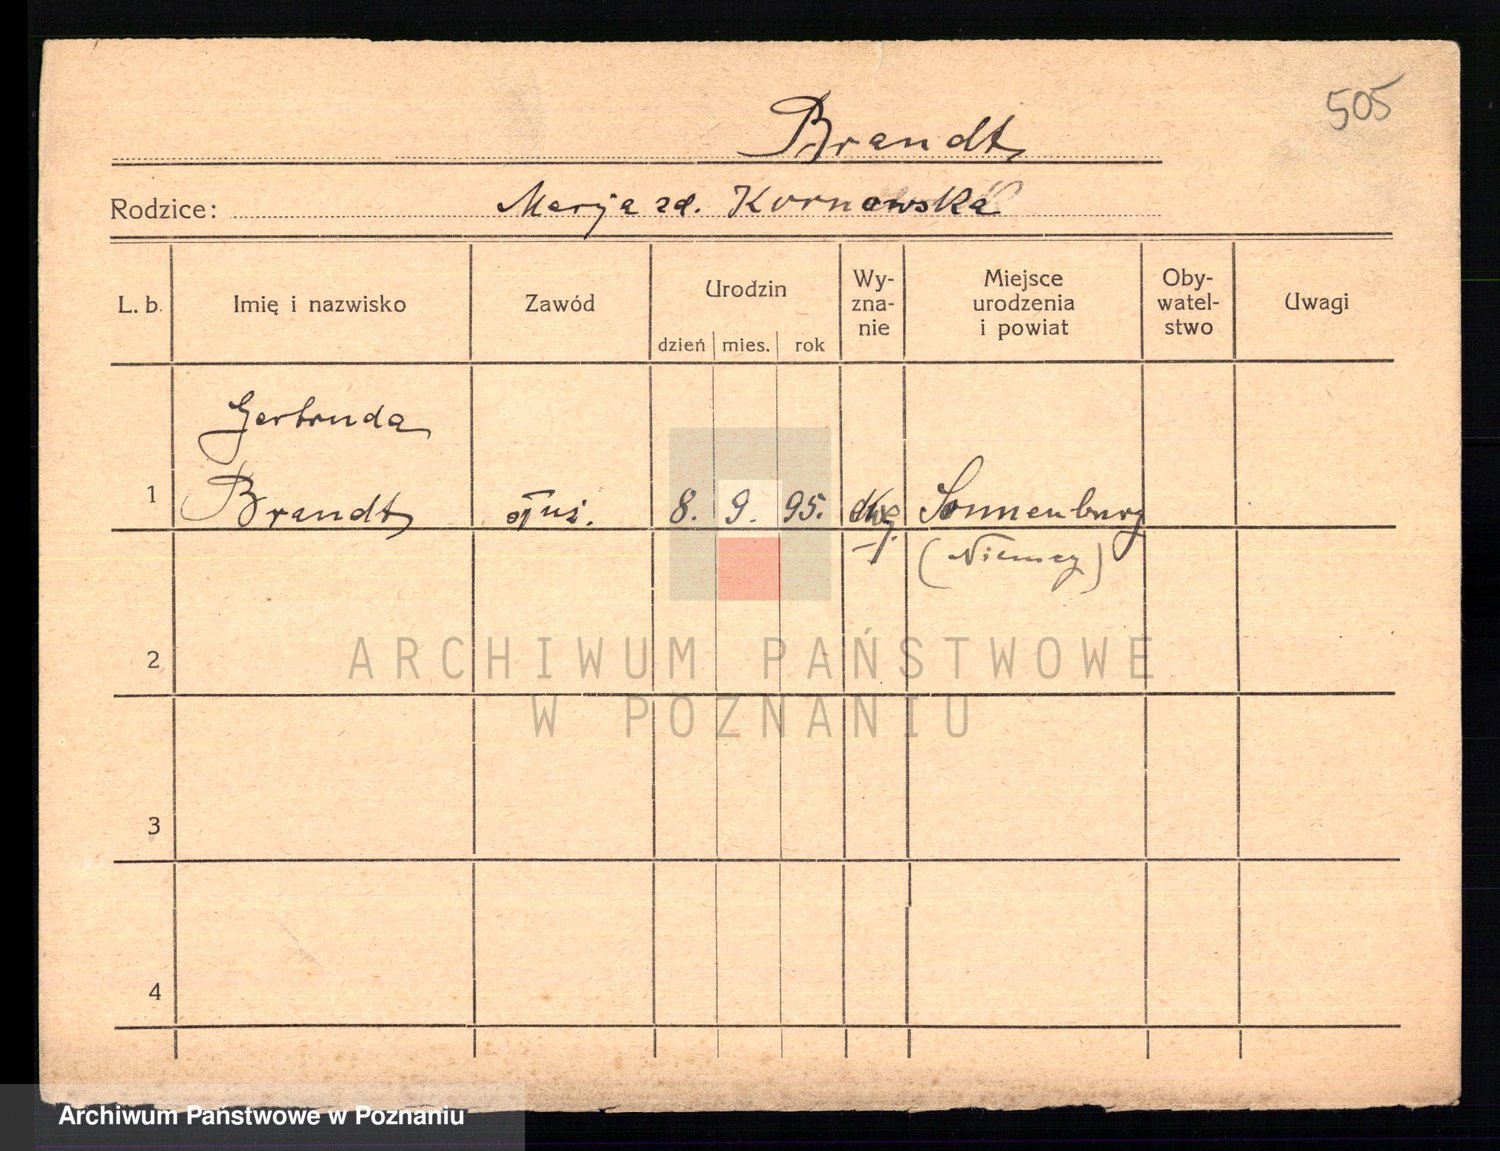 505
Brandt
Rodzice: Marja zd. Kornowska
L. b. Imię i nazwisko Zawód Urodzin dzień mies. rok Wy-zna-nie Miejsce urodzenia i powiat Oby-watel-stwo Uwagi
Gertruda
1 Brandt służ. 8. 9. 95. Sonnenburg
(Niemcy)
2
ARCHIWUM PAŃSTWOWE
W POZNANIU
3
4
Archiwum Państwowe w Poznaniu